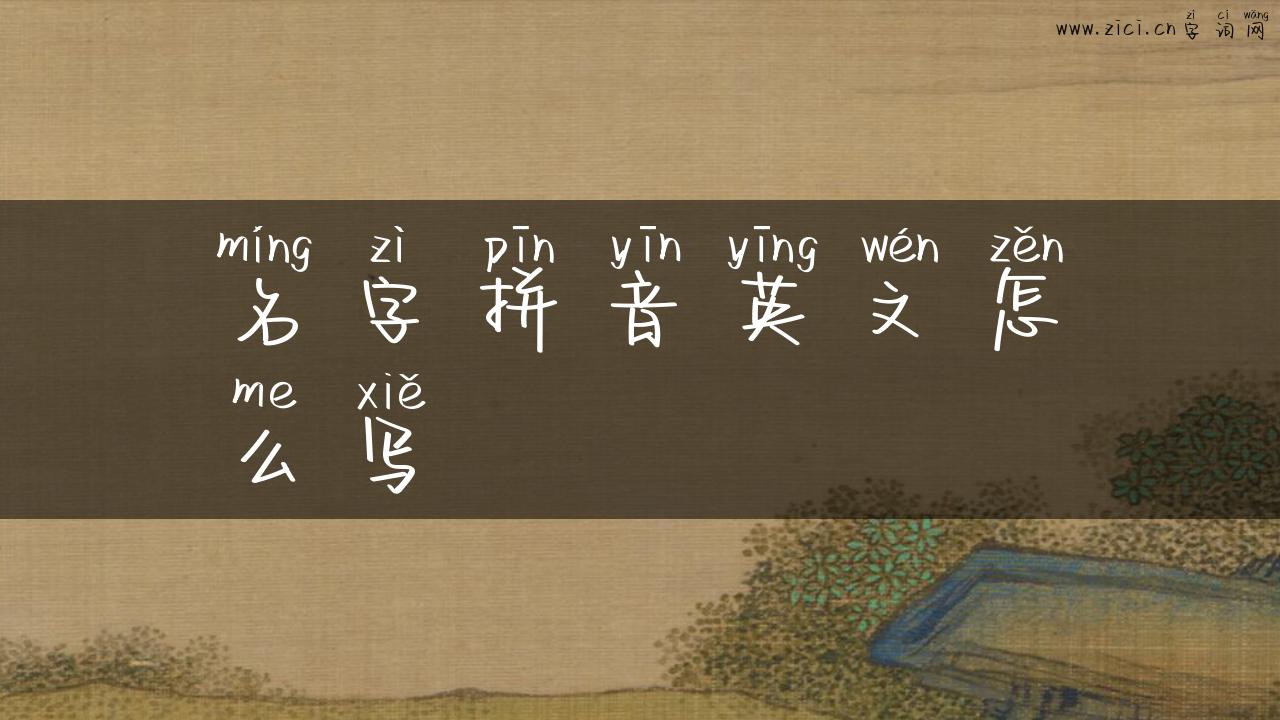 zì cí wǎng
www.zici.cn 字 词 网
míng zì pīn yīn yīng wén zěn
名 字 拼 音 英 文 怎
me xiě
么 写